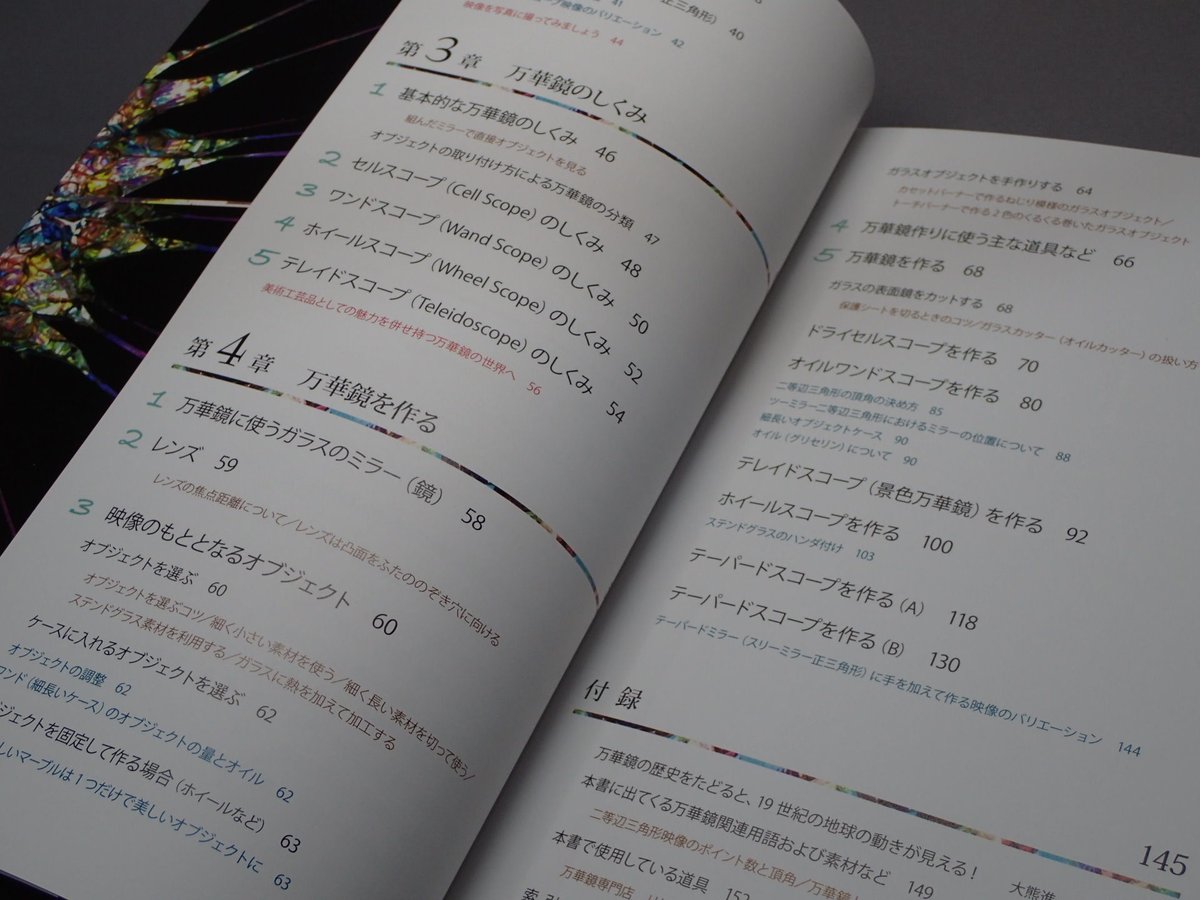 41
映像のバリエーション 42
正三角形） 40
映像を写真に撮ってみましょう 44
第3章 万華鏡のしくみ
1 基本的な万華鏡のしくみ 46
組んだミラーで直接オブジェクトを見る
オブジェクトの取り付け方による万華鏡の分類 47
2 セルスコープ（Cell Scope）のしくみ 48
3 ワンドスコープ（Wand Scope）のしくみ 50
4 ホイールスコープ（Wheel Scope）のしくみ 52
5 テレイドスコープ（Teleidoscope）のしくみ 54
美術工芸品としての魅力を併せ持つ万華鏡の世界へ 56
第4章 万華鏡を作る
1 万華鏡に使うガラスのミラー（鏡） 58
2 レンズ 59
レンズの焦点距離について／レンズは凸面をふたののぞき穴に向ける
3 映像のもととなるオブジェクト 60
オブジェクトを選ぶ 60
オブジェクトを選ぶコツ／細く小さい素材を使う／細く長い素材を切って使う／
ステンドグラス素材を利用する／ガラスに熱を加えて加工する
ケースに入れるオブジェクトを選ぶ 62
オブジェクトの調整 62
ワンド（細長いケース）のオブジェクトの量とオイル 62
ジェクトを固定して作る場合（ホイールなど） 63
しいマーブルは1つだけで美しいオブジェクトに 63
ガラスオブジェクトを手作りする 64
カセットバーナーで作るねじり模様のガラスオブジェクト／
トーチバーナーで作る2色のくるくる巻いたガラスオブジェクト
4 万華鏡作りに使う主な道具など 66
5 万華鏡を作る 68
ガラスの表面鏡をカットする 68
保護シートを切るときのコツ／ガラスカッター（オイルカッター）の扱い方
ドライセルスコープを作る 70
オイルワンドスコープを作る 80
二等辺三角形の頂角の決め方 85
ツーミラー二等辺三角形におけるミラーの位置について 88
細長いオブジェクトケース 90
オイル（グリセリン）について 90
テレイドスコープ（景色万華鏡）を作る 92
ホイールスコープを作る 100
ステンドグラスのハンダ付け 103
テーパードスコープを作る（A） 118
テーパードスコープを作る（B） 130
テーパードミラー（スリーミラー正三角形）に手を加えて作る映像のバリエーション 144
付録
145
万華鏡の歴史をたどると、19世紀の地球の動きが見える！ 大熊進
本書に出てくる万華鏡関連用語および素材など 149
二等辺三角形映像のポイント数と頂角／万華鏡
本書で使用している道具 152
万華鏡専門店
索引